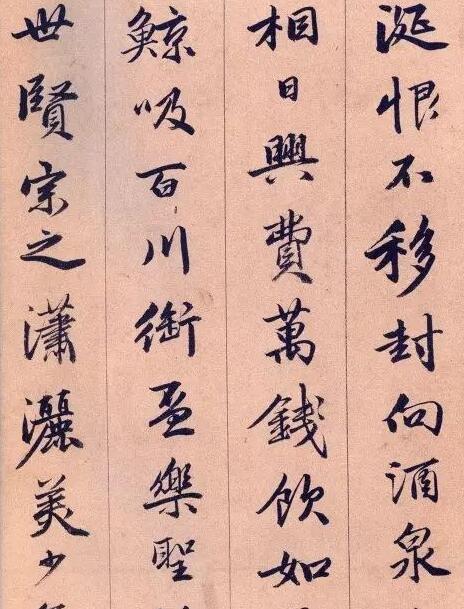 涎恨不移封向酒泉
相日興費萬錢飲如
鯨吸百川銜盃樂聖
世賢宗之瀟灑美少